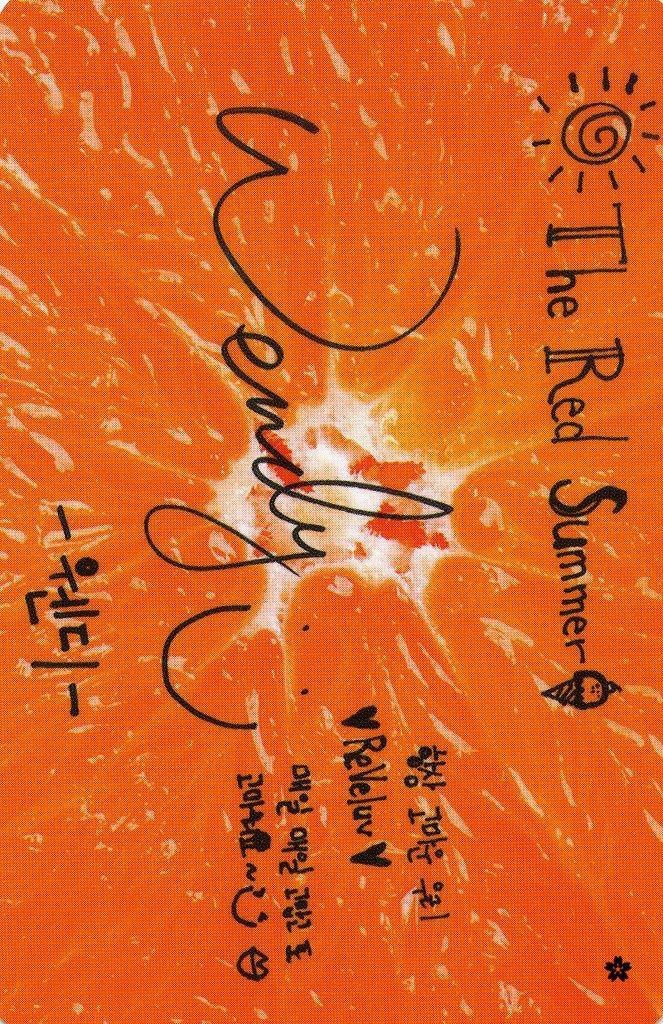 The Red Summer
Wendy
항상 고마운 우리
♥ReVeluv♥
매일 매일 고맙고 또
고마워요~
-웬디-